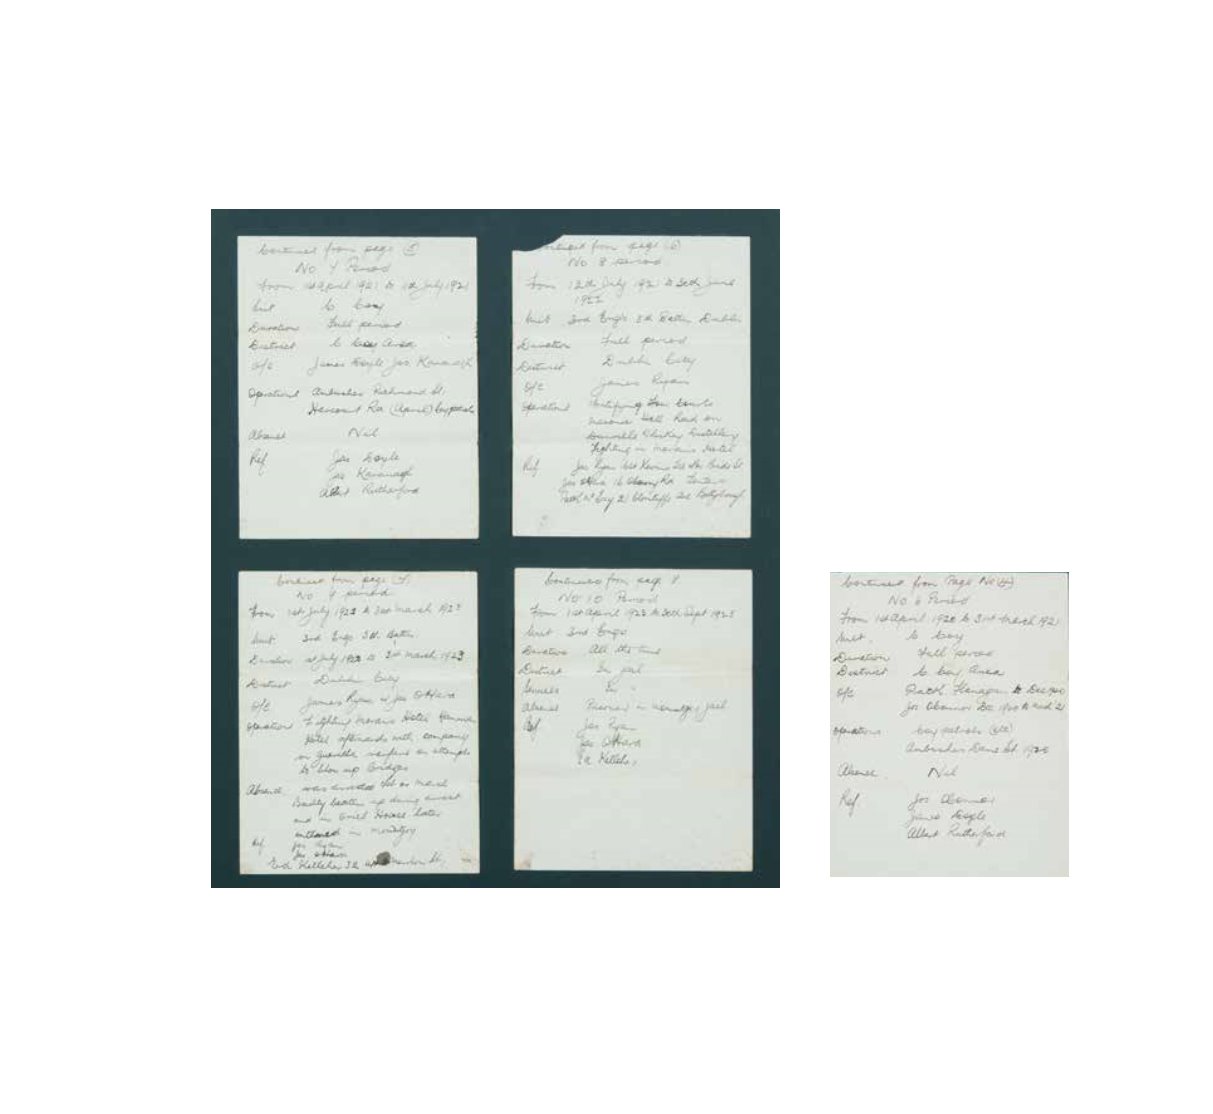 Continued from page (5)
No. 7 Period
From 1st April 1921 to 1st July 1921
Unit C Coy
Duration Full period
District C Coy Area
O/C James Doyle Jos. Kavanagh
Operations Ambushes Richmond St.
Harcourt Rd (April) Coy patrols
Absence Nil
Ref Jas Doyle
Jos Kavanagh
Albert Rutherford
Continued from page (6)
No 8 period
From 12th July 1921 to 30th June
1922
Unit 3rd Eng's 5th Batt. Dublin
Duration Full period
District Dublin City
O/C James Ryan
Operations Fortifying Four Courts
Masonic Hall Raid on
Whiskey Distillery
Fighting in Morans Hotel
Ref Jas Ryan
Jas O'Hara 16 Rd
21 Ballybough
Continued from page (7)
No 9 period
From 1st July 1922 to 31st March 1923
Unit 3rd Engs 5th Battn.
Duration 1st July 1922 to 31st March 1923
District Dublin City
O/C James Ryan & Jas O'Hara
Operation Fighting Morans Hotel Hammam
Hotel afterwards with company
in guerilla warfare on attempts
to blow up Bridges
Absence was arrested 1st or March
Badly beaten up during arrest
and in Oriel House later
interned in mountjoy
Ref Jas Ryan
Jas O'Hara
Ed. Kelleher 32 St.
Continued from page 8
No 10 Period
From 1st April 1923 to 30th Sept 1923
Unit 3rd Engs
Duration All the time
District In jail
Services In "
Absence Prisoner in mountjoy jail
Ref Jas Ryan
Jas O'Hara
Ed Kelleher
Continued from Page No (4)
No 6 Period
From 1st April 1920 to 31st March 1921
Unit. C Coy
Duration Full period
District C Coy Area
O/C Patk Flanagan to Dec 1920
Jos O'Connor Dec 1920 to
Operations Coy patrols (etc)
Ambushes 1920
Absence. Nil
Ref Jos O'Connor
James Doyle
Albert Rutherford